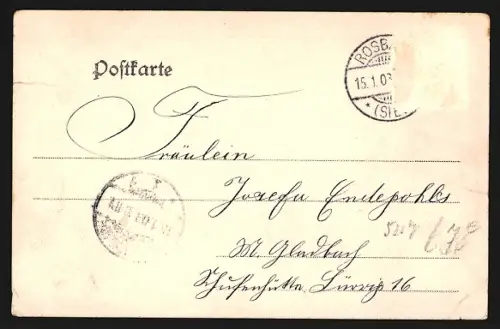 Postkarte
ROSB
15.1.03
* (SIE
Fräulein
Josefa Endepohls
M. Gladbach
Lürrip 16